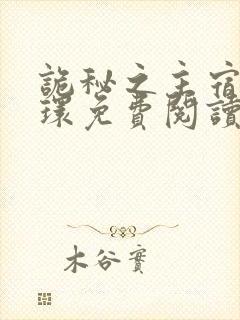 詭秘之主宿
環免費閱讀
木谷實